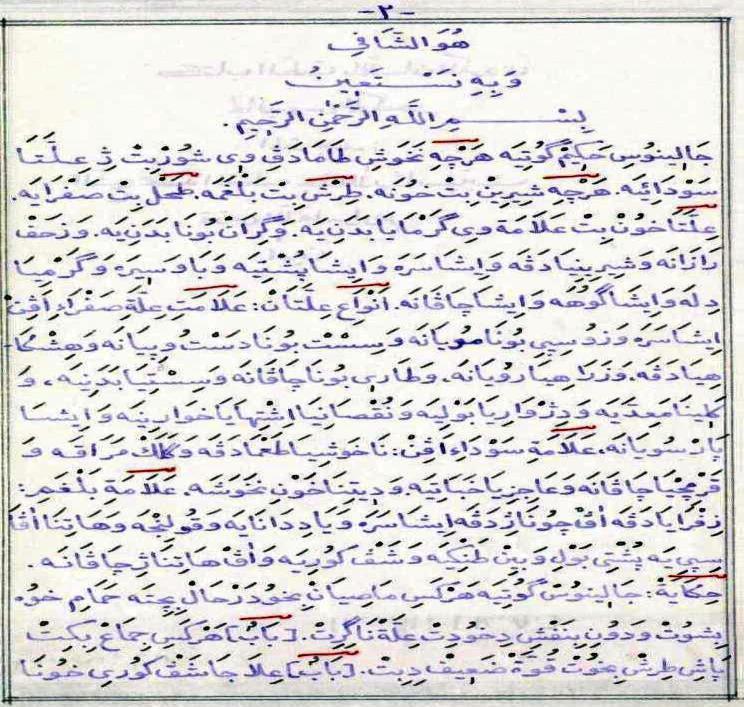 -٢-
هُوَ الشَّافِي
وَبِهِ نَسْتَعِينُ
بِسْمِ اللّٰهِ الرَّحْمٰنِ الرَّحِيمِ.
جَالِينُوسِ حَكِيمْ گُوتِيَه هَرْچِه نَخَوشْ طَامَادَڤِ وِي شُورْبِتْ ژِ عِلَّتَا
سَوْدَائِيَه. هَرْچِه شِيرِينْ بِتْ خُونَه. طِرْشْ بِتْ بَلْغَمَه. طَحْل بِتْ صَفْرَايَه.
عِلَّتَا خُونْ بِتْ عَلَامَة وِي گَرْمَايَا بَدَنِ يَه. وَگِرَانْ بُونَا بَدَنِ يَه. وَزَحْف
رَازَانَه وَشِيرِينِيَادَڤَه وَاِيشَاسَرَه وَاِيشَاپُشْتِيَه وَبَاوَسِيرَه وَگَرْمِيَا
دِلَه وَاِيشَا گُوهَه وَاِيشَاچَاڤَانَه. اَنْوَاعِ عِلَّتَانْ: عَلَامَتِ عِلَّةِ صَفْرَاءِ اَڤِنْ
اِيشَاسَرَه وَزُو سِپِي بُونَامُويَانَه وَسِسْتْ بُونَادَسْتْ وپِيَانَه وَهِشْكَا-
هِيَادَڤَه. وَزَرَاهِيَارُويَانَه. وَطَارِي بُونَاچَاڤَانَه وَسِسْتِيَابَدَنِيَه، وَ
كِلِينَامَعِدَيَه وَدِژْوَارِيَابَوْلِيَه وَنُقْصَانِيَااِشْتِهَايَاخَوَارِنِيَه وَاِيشَا
پَارْسُويَانَه. عَلَامَة سَوْدَاءِ اَڤِنْ: نَاخَوشِيَاطَعْمَادَڤَه وَكَلَكْ مَرَاقَه وَ
قَرْمِچِيَاچَاڤَانَه وَعَاجِزِيَاخَبَاتِيَه. وَدِيتِنَاخَوْنِ نَخَوشَه. عَلَامَة بَلْغَمِ:
زِڤْرَايَادَڤَه اَڤْ چُونَاژِدَڤَه اِيشَاسَرَه وَيَادِدَانَايَه وَقُولِنْجَه وَهَاتِنَااَڤَا
سِپِي يَه پُشْتِي بَوْلِ وَبِيْنْ طَنْگِيَه وَشَڤْ كُورِيَه وَاَڤْ هَاتِنَاژِچَاڤَانَه.
حِكَايَة: جَالِينُوسْ گُوتِيَه هَرْكَسِ مَاصِيَانْ بِخُودْرْحَالِ بِچِتَه حَمَامِ خُوه
بِشُوتْ وَدُونِ بِنَڤْشِ دِخُودِتْ عِلَّة نَاگِرِتْ. [بَابْ] هَرْكَسِ جِمَاعْ بِكِتْ
پَاشِ طِرْشِ بِخُوتْ قُوَّة ضَعِيفْ دِبِتْ. [بَابْ] عِلَاجَاشَڤْ كُورِي خُونَا